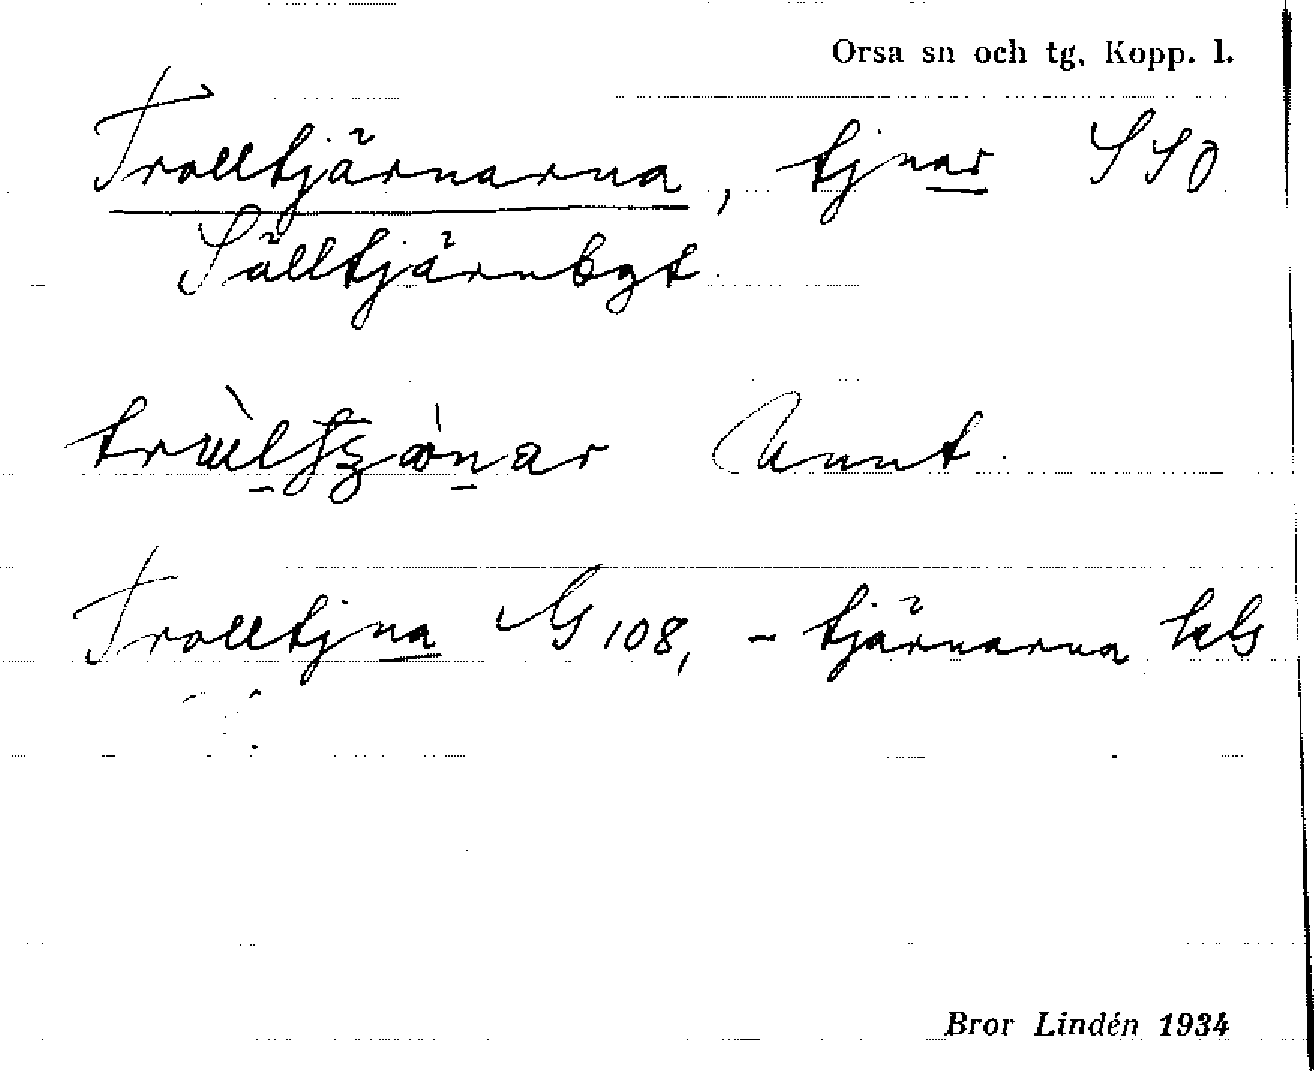 Orsa sn och tg, Kopp. l.
Trolltjärnarna, tjnar SSO
Sälltjärnbgt.
Unnt.
Trolltjna G 108, - tjärnarna
Bror Lindén 1934